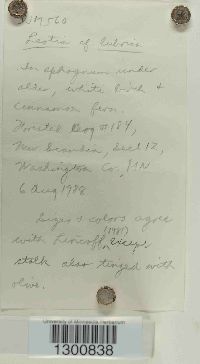 JM 560
Leotia cf. lubrica
In sphagnum under
alder, white birch &
cinnamon fern.
Forsted Bog # 184,
New Scandia, Sect 12,
Washington Co., MN
6 Aug 1988
Size & colors agree
with Lincoff (1981) except
stalk also tinged with
olive.
University of Minnesota Herbarium
1300838